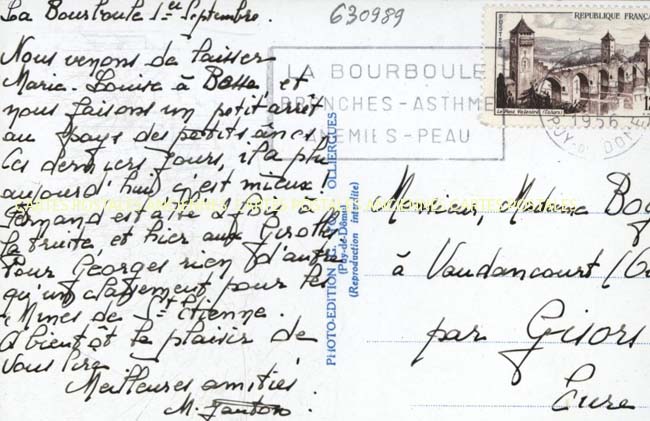 La Bourboule 1er Septembre.
630989
Nous venons de laisser
Marie-Louise à Besse, et
nous faisons un petit arrêt
au pays des petits ânes.
Ces derniers jours, il a plu
aujourd'hui c'est mieux!
Fernand est allé 2 fois à
la truite, et hier aux girolles
Pour Georges rien d'autre
qu'un classement pour les
Mines de St Etienne.
A bientôt le plaisir de
vous lire.
Meilleures amitiés
M.
LA BOURBOULE
BRONCHES-ASTHME
ANEMIES-PEAU
REPUBLIQUE FRANÇAISE
POSTES
Le Pont Valentré (Cahors)
1956
PUY-DE-DOME
PHOTO-EDITION OLLIERGUES
(Puy-de-Dôme)
(Reproduction interdite)
CARTES POSTALES ANCIENNES CARTES POSTALES ANCIENNES CARTES POSTALES
Monsieur, Madame
à Vaudancourt
par Gisors
Eure